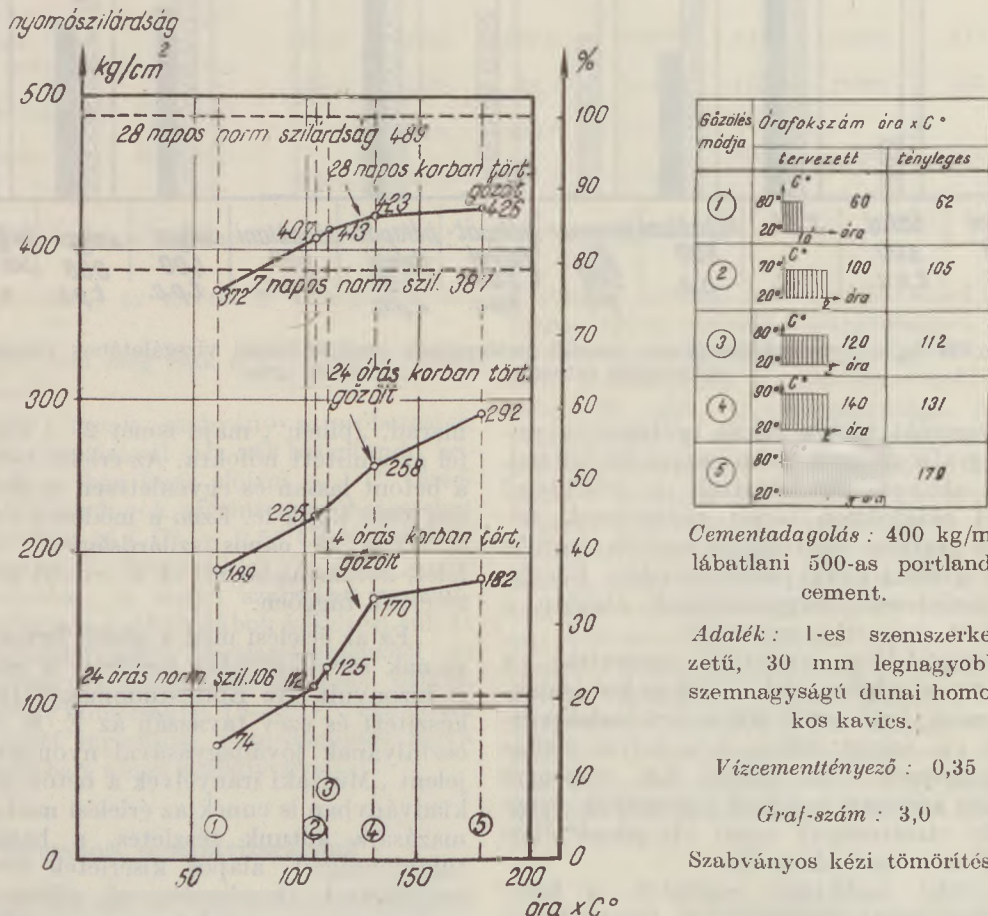 nyomószilárdság
kg/cm²
%
500
400
300
200
100
0
100
90
80
70
60
50
40
30
20
10
0
28 napos norm. szilárdság 489
28 napos korban tört.
gőzölt
372
407
413
423
426
7 napos norm. szil. 387
24 órás korban tört.
gőzölt
189
225
258
292
4 órás korban tört,
gőzölt
24 órás norm. szil. 106
74
112
125
170
182
① ② ③ ④ ⑤
50 100 150 200
óra x C°
Gőzölés módja
Órafokszám óra x C°
tervezett tényleges
① 80° 20° C° óra 60 62
② 70° 20° C° 2 óra 100 105
③ 80° 20° C° óra 120 112
④ 90° 20° C° 2 óra 140 131
⑤ 80° 20° 179
Cementadagolás : 400 kg/m
lábatlani 500-as portland
cement.
Adalék : I-es szemszerke
zetű, 30 mm legnagyobb
szemnagyságú dunai homo
kos kavics.
Vízcementtényező : 0,35
Graf-szám : 3,0
Szabványos kézi tömörítés